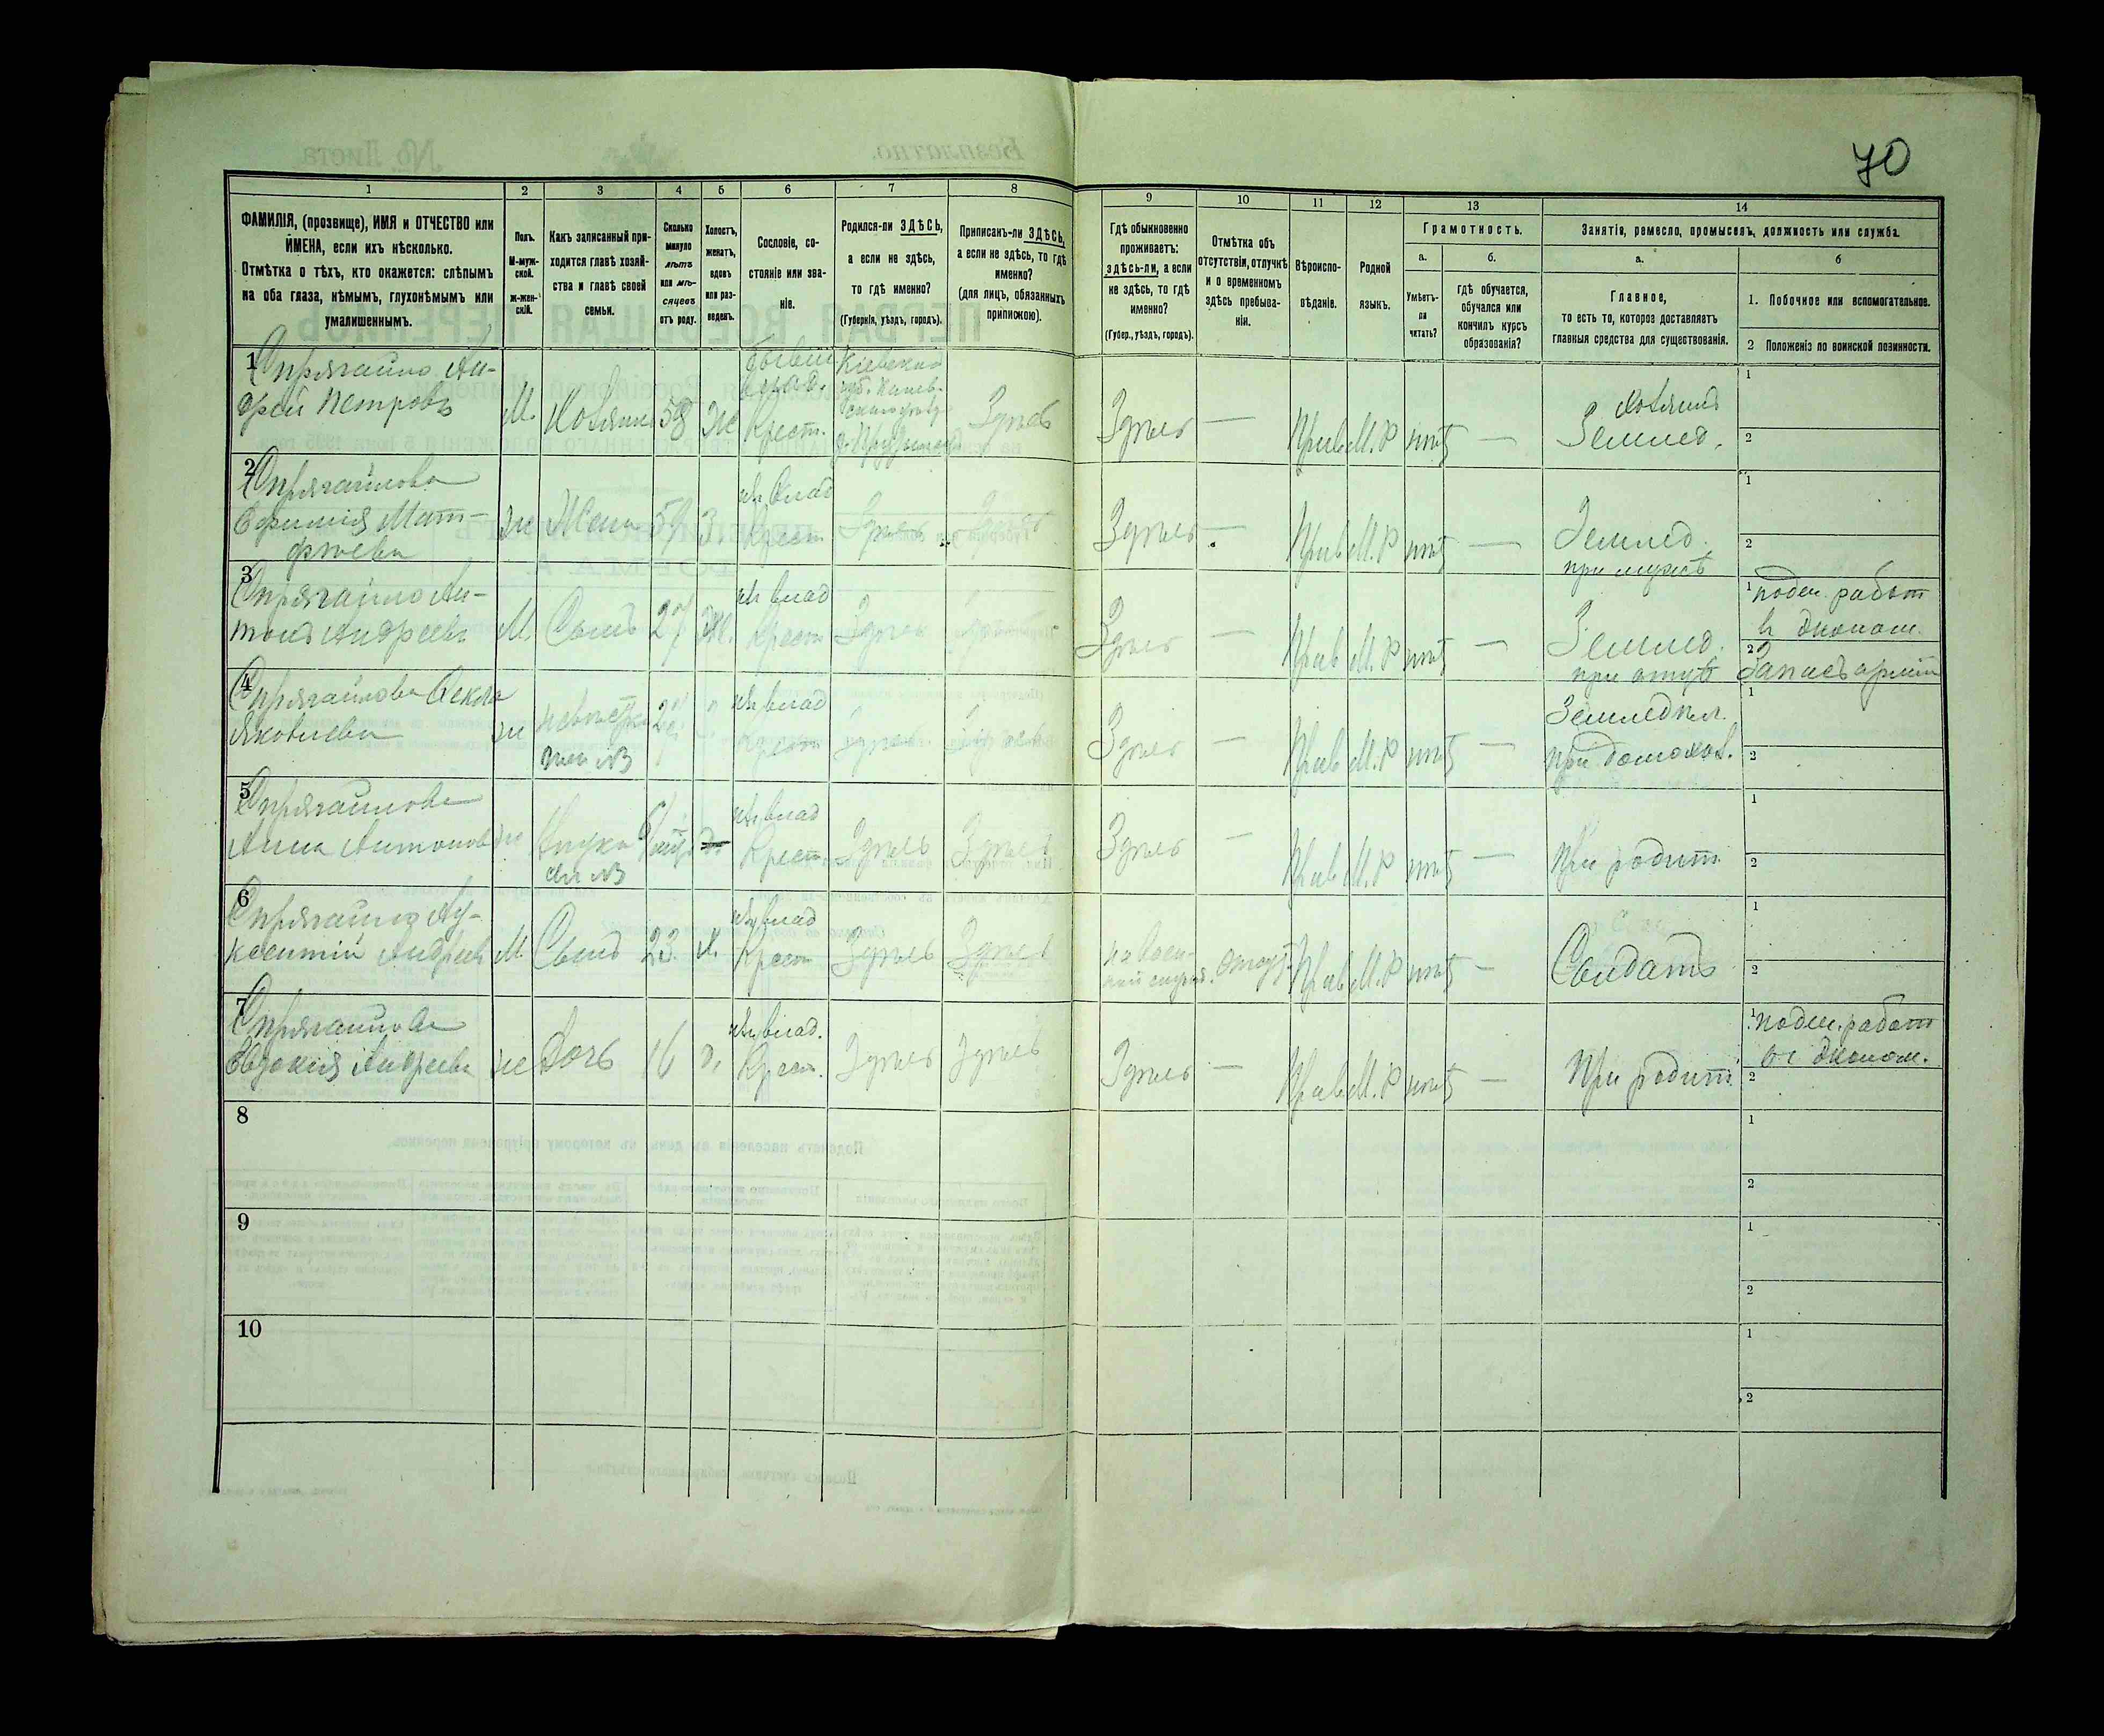 70
1 2 3 4 5 6 7 8 9 10 11 12 13 14
ФАМИЛІЯ, (прозвище), ИМЯ и ОТЧЕСТВО или
ИМЕНА, если ихъ нѣсколько.
Отмѣтка о тѣхъ, кто окажется: слѣпымъ
на оба глаза, нѣмымъ, глухонѣмымъ или
умалишеннымъ.
Полъ.
М-муж-
ской.
ж-жен-
скій.
Какъ записанный при-
ходится главѣ хозяй-
ства и главѣ своей
семьи.
Сколько
минуло
лѣтъ
или мѣ-
сяцевъ
отъ роду.
Холостъ,
женатъ,
вдовъ
или раз-
веденъ.
Сословіе, со-
стояніе или зва-
ніе.
Родился-ли ЗДѢСЬ,
а если не здѣсь,
то гдѣ именно?
(Губернія, уѣздъ, городъ).
Приписанъ-ли ЗДѢСЬ,
а если не здѣсь, то гдѣ
именно?
(для лицъ, обязанныхъ
припискою).
Гдѣ обыкновенно
проживаетъ:
здѣсь-ли, а если
не здѣсь, то гдѣ
именно?
(Губер., уѣздъ, городъ).
Отмѣтка объ
отсутствіи, отлучкѣ
и о временномъ
здѣсь пребыва-
ніи.
Вѣроиспо-
вѣданіе.
Родной
языкъ.
Грамотность.
а.
Умѣетъ-
ли
читать?
б.
гдѣ обучается,
обучался или
кончилъ курсъ
образованія?
Занятія, ремесло, промыселъ, должность или служба.
а.
Главное,
то есть то, которое доставляетъ
главныя средства для существованія.
б
1. Побочное или вспомогательное.
2 Положеніе по воинской повинности.
1 Спрягайло Ан-
дрей Петровъ
М. Хозяинъ 58 Ж Крест. Здѣсь Здѣсь — Прав М.Р нѣтъ —
Хозяинъ
Землед.
1
2
2 Спрягайлова
Ефимія Мат-
фѣева
ж Жена З. Крест Здѣсь Здѣсь Здѣсь — Прав М.Р нѣтъ —
Землед.
при мужѣ
1
2
3 Спрягайло Ан-
тонъ Андреевъ
М. Сынъ 27 Ж. Крест Здѣсь Здѣсь — Прав М.Р нѣтъ —
Землед.
при отцѣ
1 поден. работ
в эконом.
2 Запасъ арміи
4 Спрягайлова Фекла
Яковлева
ж невѣстка
Крест Здѣсь Здѣсь — Прав М.Р нѣтъ —
при домохоз.
1
2
5 Спрягайлова
Анна Антонов
ж
Крест. Здѣсь Здѣсь Здѣсь — Прав М.Р нѣтъ —
При родит.
1
2
6 Спрягайло Ау-
ксентій Андреев
М. Сынъ 23. Х. Крест Здѣсь Здѣсь
на воен-
ной служб. отсут. Прав М.Р нѣтъ —
Солдатъ
1
2
7 Спрягайлова
Евдокія Андреева
ж Дочь 16 Крест. Здѣсь Здѣсь Здѣсь — Прав М.Р нѣтъ —
При родит.
1 поден. работ
въ эконом.
2
8
1
2
9
1
2
10
1
2